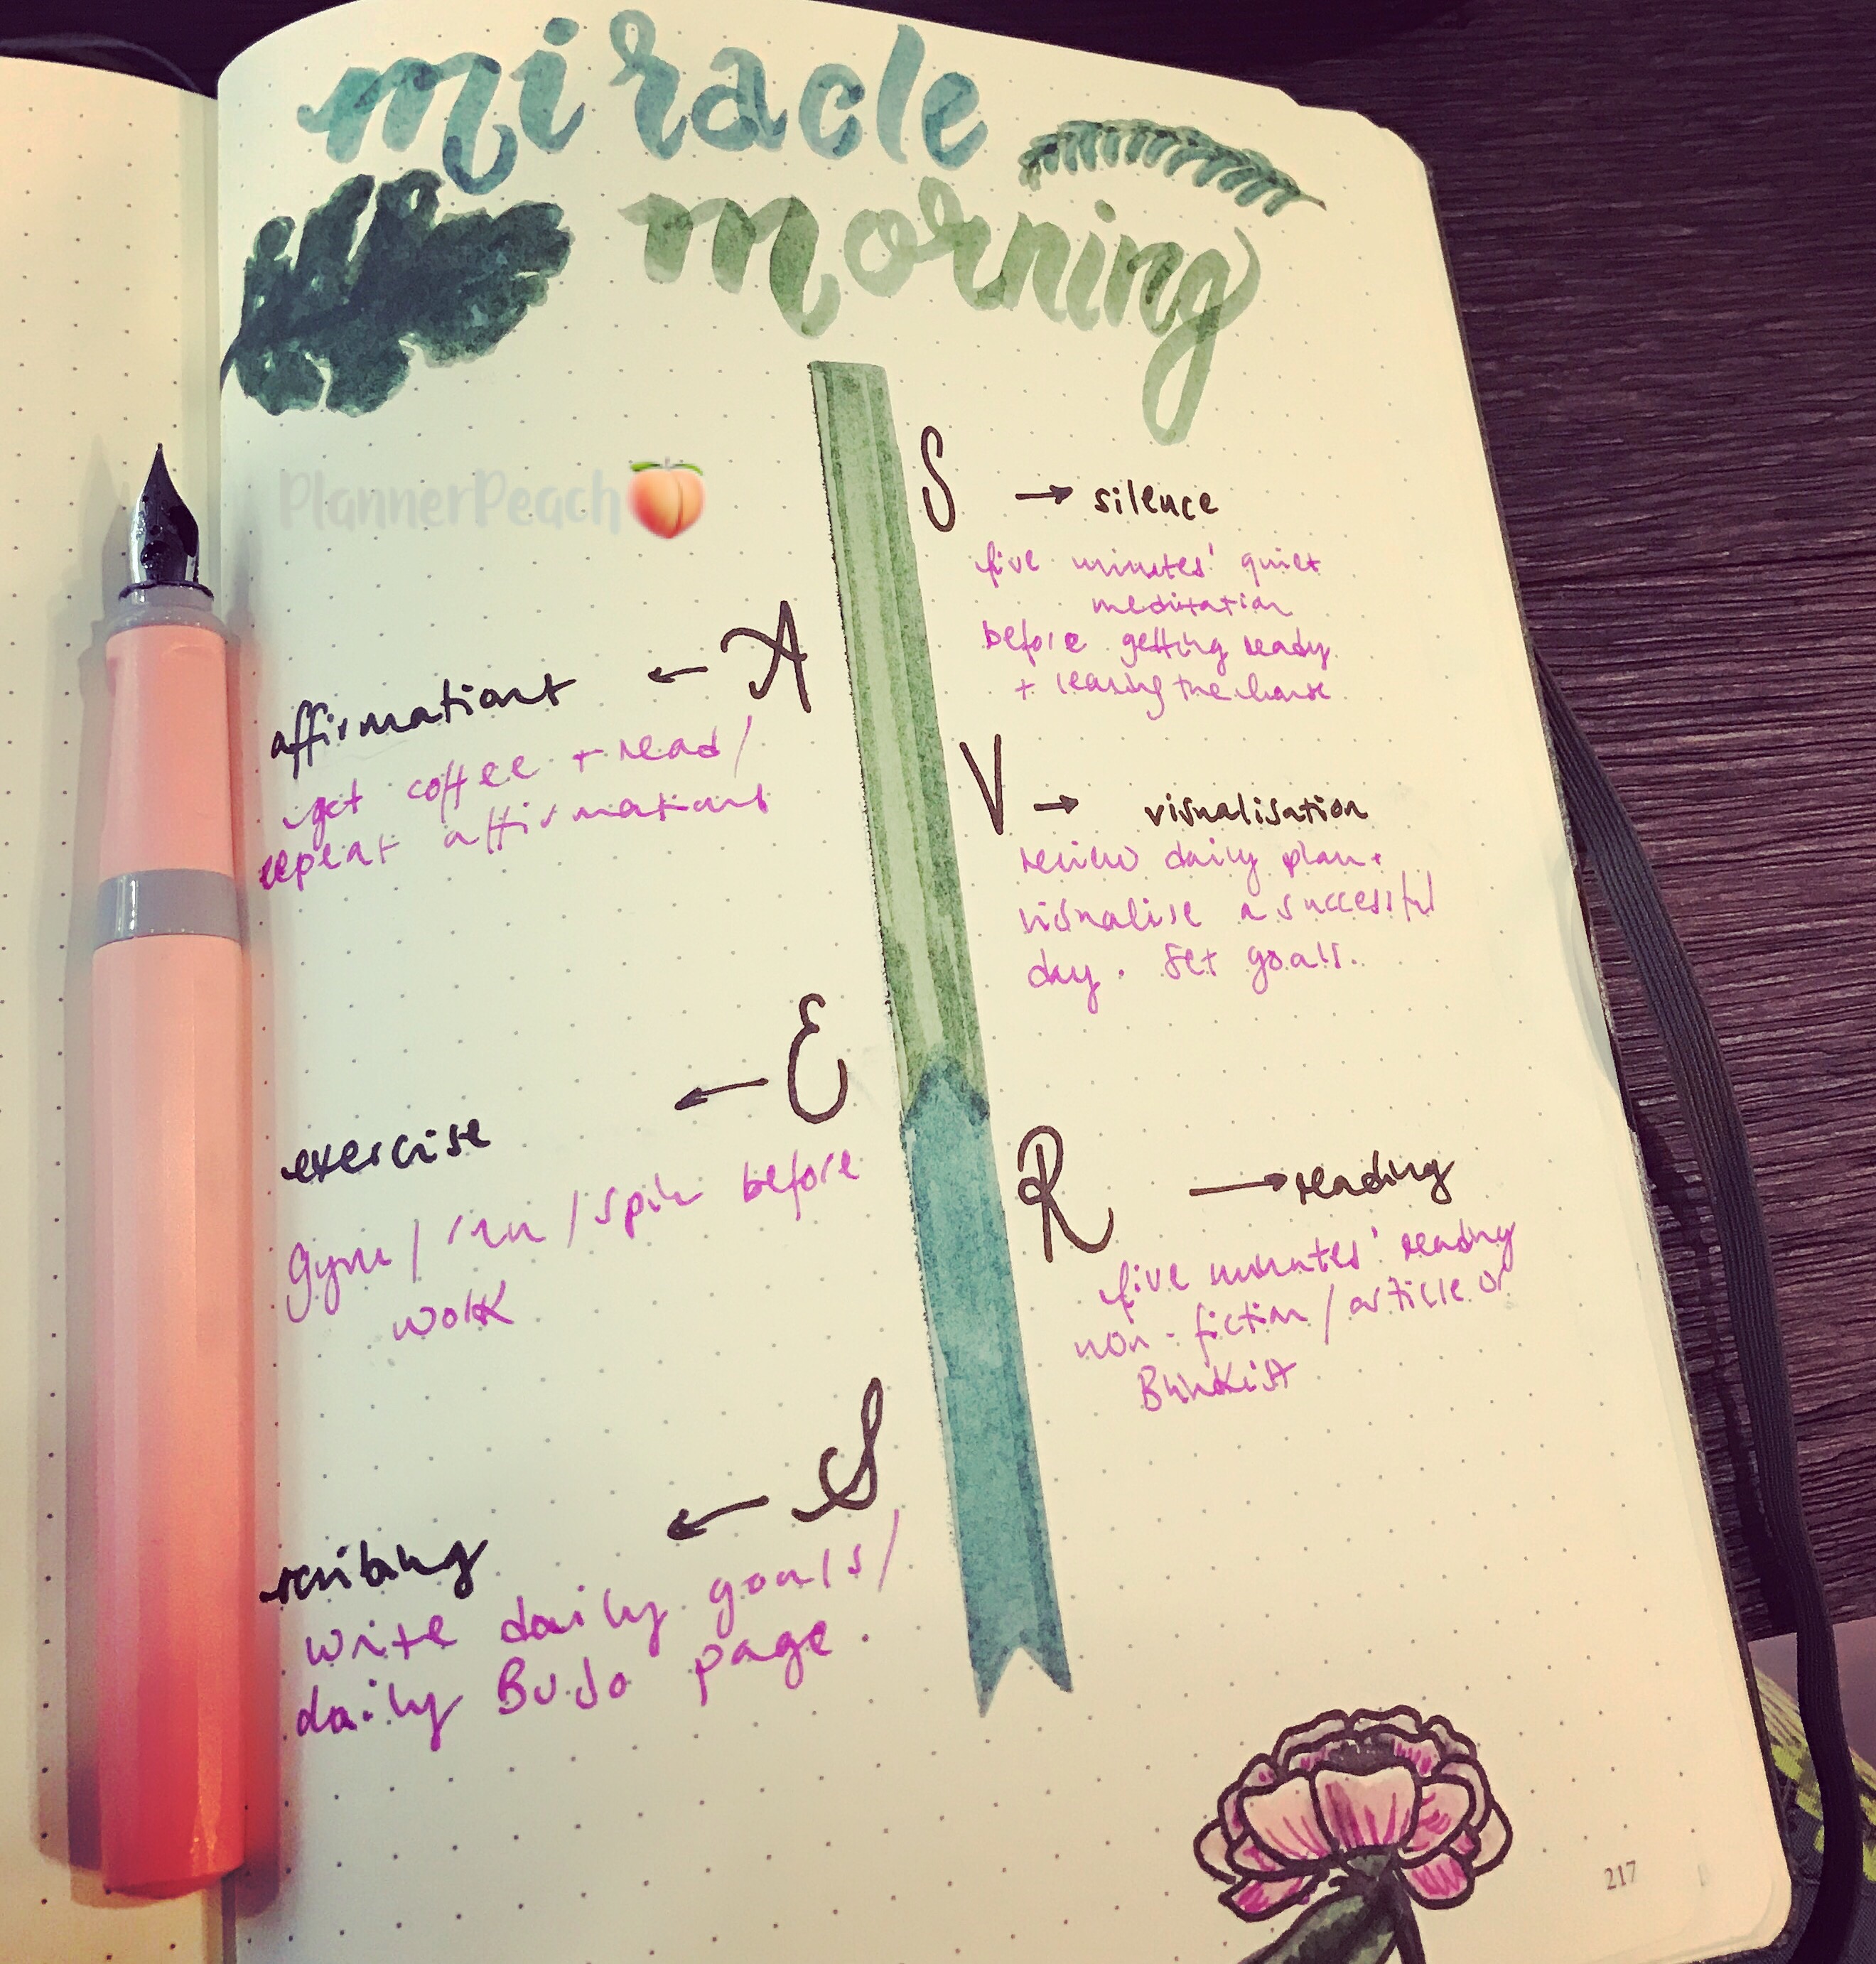 miracle
morning
PlannerPeach
S → silence
five minutes' quiet
meditation
before getting ready
+ leaving the house
A
←
affirmations
get coffee + read/
repeat affirmations
V → visualisation
review daily plan +
visualise a successful
day. Set goals.
E
←
exercise
gym / run / spin before
work
R → reading
five minutes' reading
non-fiction / article or
Blinkist
S
←
scribing
write daily goals/
daily BuJo page.
217